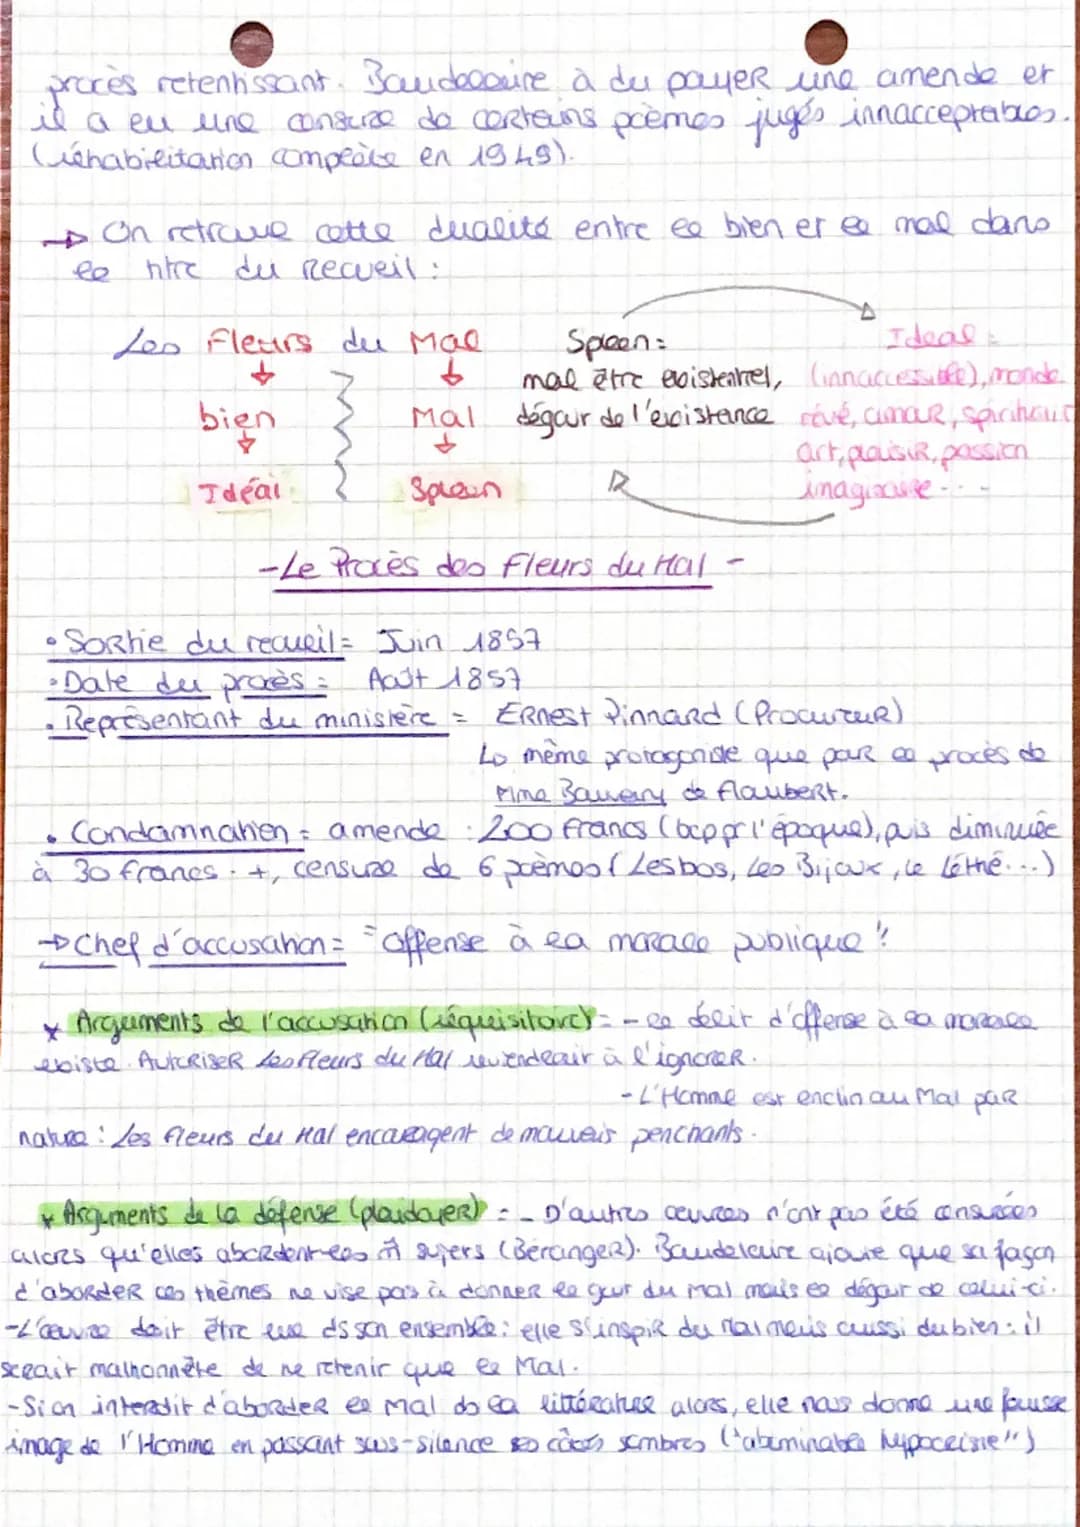 procès retentissant. Baudelaire à du payer une amende et
il a eu une censure de certains poèmes jugés innacceptables.
(réhabilitation complète en 1949).
→ On retrouve cette dualité entre le bien et le mal dans
le titre du Recueil :
Les Fleurs du Mal
bien Mal
Idéal Spleen
Spleen :
mal être existentiel,
dégout de l'existence
Ideal :
(innaccessible), monde
rêvé, amour, spirituel
art, plaisir, passion
imaginaire...
- Le Procès des Fleurs du Mal -
• Sortie du recueil = Juin 1857
• Date du procès : Août 1857
• Représentant du ministère = Ernest Pinnard (Procureur)
↳ même protagoniste que pour le procès de
Mme Bauvary de Flaubert.
• Condamnation = amende : 200 francs (bcp pr l'époque), puis diminuée
à 30 francs. +, censure de 6 poèmes (Lesbos, Les Bijoux, Le Léthé...)
→ Chef d'accusation = "offense à la morale publique".
* Arguments de l'accusation (réquisitoire) = - le délit d'offense à la morale
existe. Autoriser Les Fleurs du Mal reviendrait à l'ignorer.
- L'Homme est enclin au Mal par
nature : Les Fleurs du Mal encouragent de mauvais penchants.
* Arguments de la défense (plaidoyer) = - D'autres oeuvres n'ont pas été censurées
alors qu'elles abordent les m̂ sujets (Béranger). Baudelaire ajoute que sa façon
d'aborder ces thèmes ne vise pas à donner le gout du mal mais le dégout de celui-ci.
- L'œuvre doit être lue ds son ensemble : elle s'inspir du Mal mais aussi du bien : il
serait malhonnête de ne retenir que le Mal.
- Si on interdit d'aborder le Mal ds la littérature alors, elle nous donne une fausse
image de l'Homme en passant sous-silence ses côtés sombres ("abominable hypocrisie")